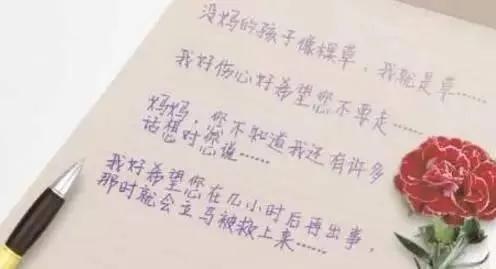 没妈的孩子像棵草，我就是草……
我好伤心好希望您不要走……
妈妈，您不知道我还有许多
话想对您说……
我好希望您在几小时后再出事，
那时就会立马被救上来……